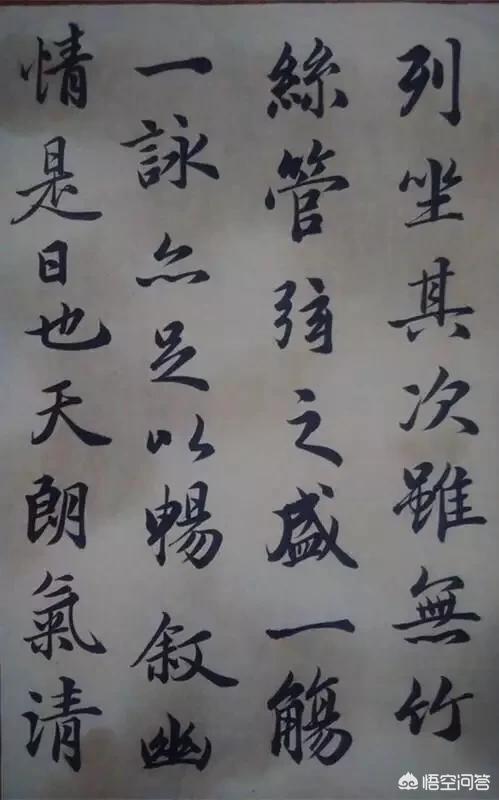 列坐其次雖無竹
絲管弦之盛一觴
一詠亦足以暢敘幽
情是日也天朗氣清
悟空问答